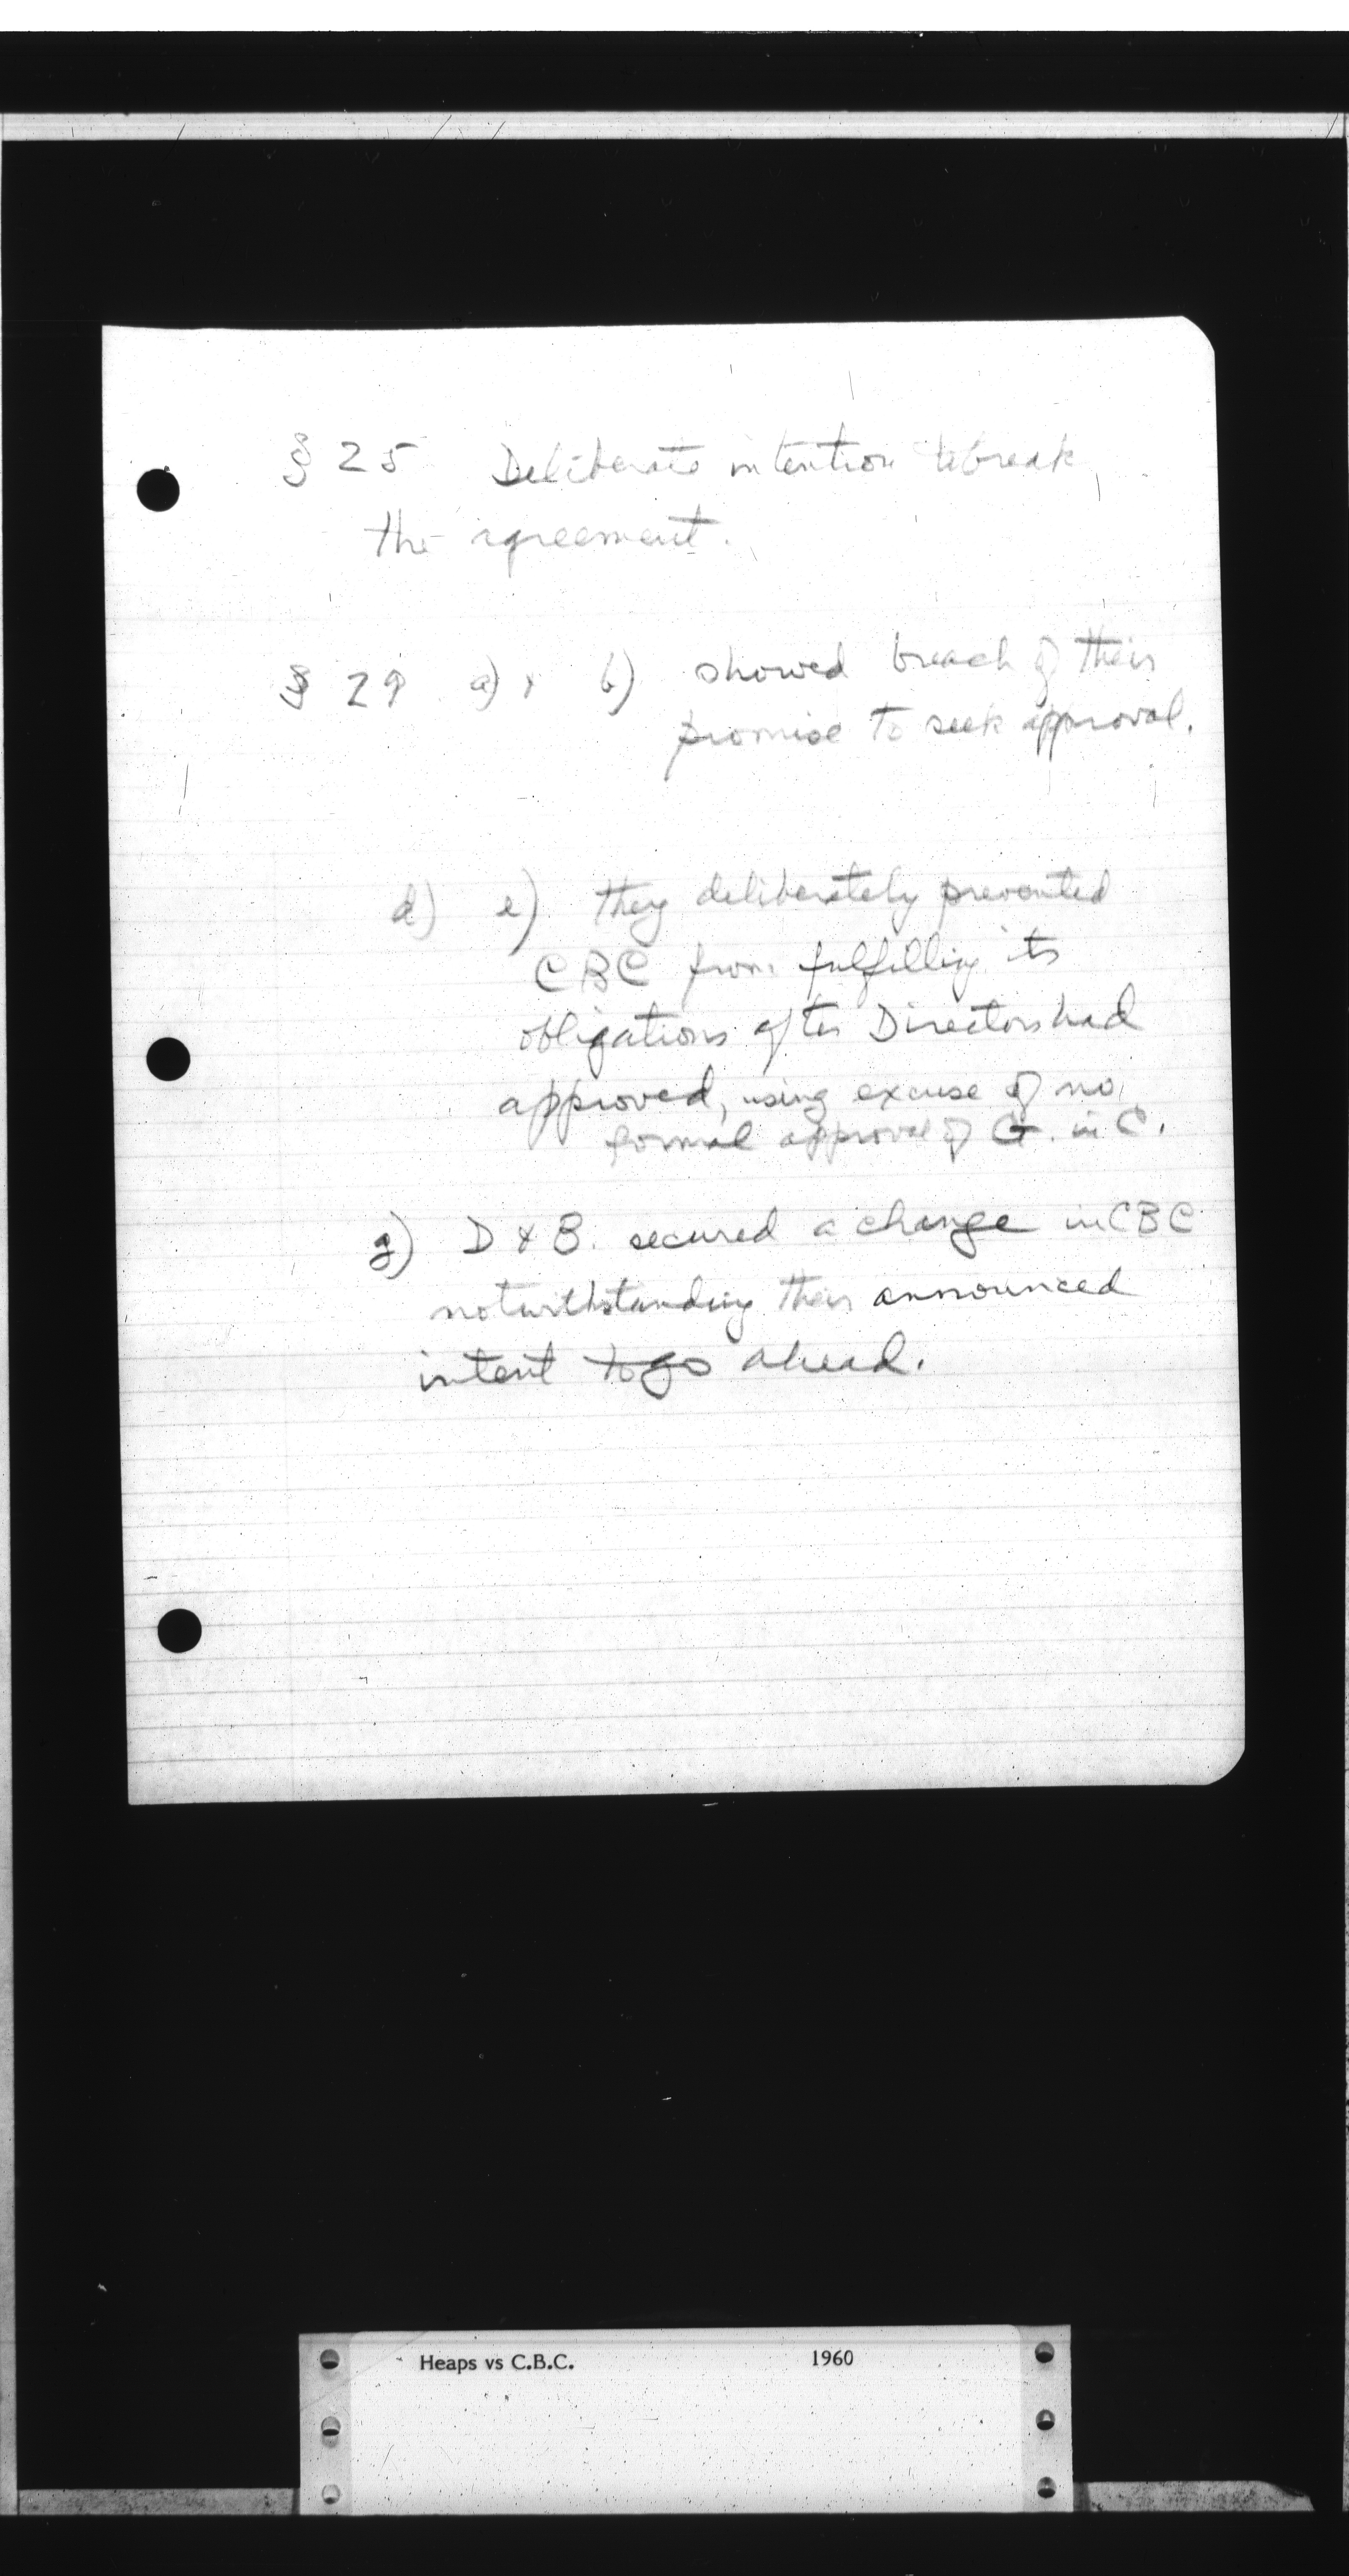 § 25 Deliberate intention to break
the agreement.
§ 29 a) & b) showed breach of their
promise to seek approval.
d) e) they deliberately prevented
CBC from fulfilling its
obligations after Directors had
approved, using excuse of no
formal approval of G. in C.
g) D & B. secured a change in CBC
notwithstanding their announced
intent to go ahead.
Heaps vs C.B.C. 1960